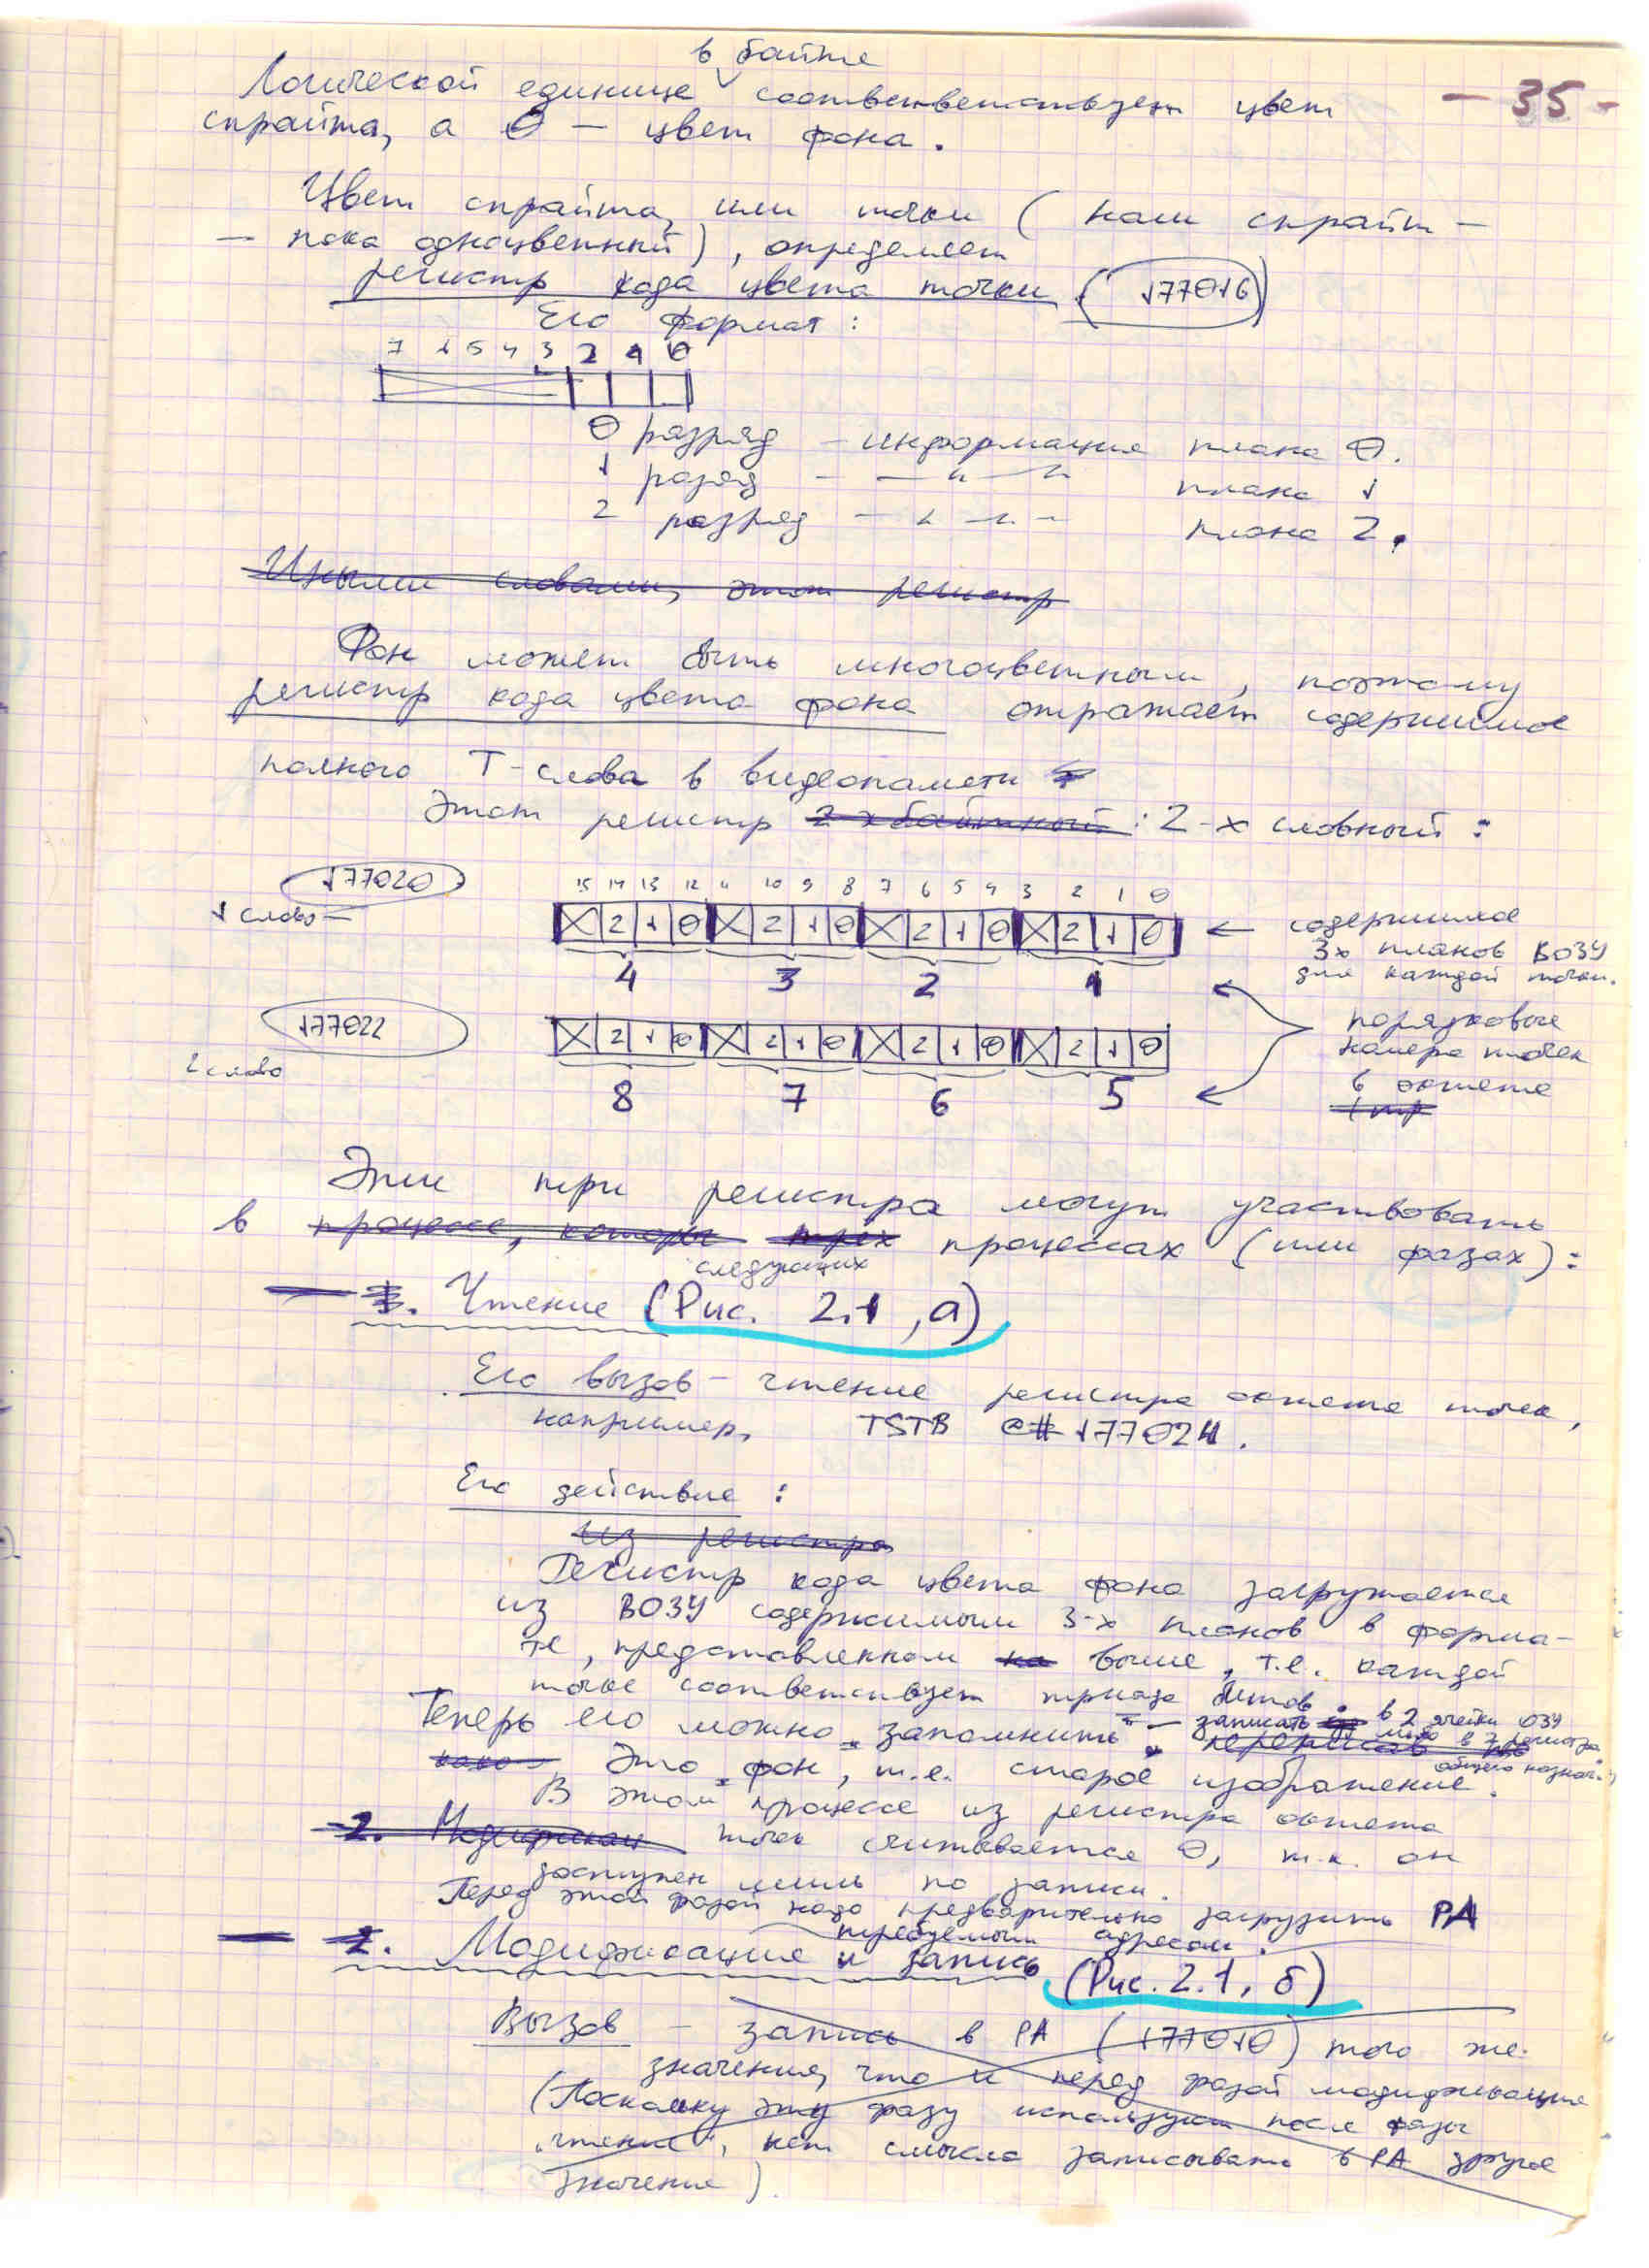 - 35 -
в байте
Логической единице соответствует цвет
спрайта, а 0 — цвет фона.
Цвет спрайта, или точки (наш спрайт —
— пока одноцветный), определяет
регистр кода цвета точки (177016)
Его формат:
7 6 5 4 3 2 1 0
0 разряд — информация плана 0.
1 разряд — — " — плана 1
2 разряд — " — плана 2.
Иными словами, этот регистр
Фон может быть многоцветным, поэтому
регистр кода цвета фона отражает содержимое
полного Т-слова в видеопамяти
Этот регистр 2-х байтный : 2-х словный :
177020
1 слово —
15 14 13 12 11 10 9 8 7 6 5 4 3 2 1 0
X 2 1 0 X 2 1 0 X 2 1 0 X 2 1 0
4 3 2 1
← содержимое
3х планов ВОЗУ
для каждой точки.
177022
2 слово
X 2 1 0 X 2 1 0 X 2 1 0 X 2 1 0
8 7 6 5
порядковые
номера точек
в октете
Эти три регистра могут участвовать
в процессе, которы трех процессах (или фазах):
следующих
— 1. Чтение (Рис. 2.1, а)
Его вызов — чтение регистра октета точек,
например, TSTB @# 177024.
Его действие :
Из регистра
Регистр кода цвета фона загружается
из ВОЗУ содержимым 3-х планов в форма-
те, представленном на выше, т.е. каждой
точке соответствует триада битов.
Теперь его можно запомнить — записать в 2 ячейки ОЗУ
либо в 2 регистра
общего назнач.
Это фон, т.е. старое изображение.
В этом процессе из регистра октета
2. Модификац точек считывается 0, т.к. он
доступен лишь по записи.
Перед этой фазой надо предварительно загрузить РА
требуемым адресом.
— 2. Модификация и запись (Рис. 2.1, б)
Вызов — запись в РА (177010) того же
значения, что и перед фазой модификации
(Поскольку эту фазу используют после фазы
"чтение", нет смысла записывать в РА другое
значение).